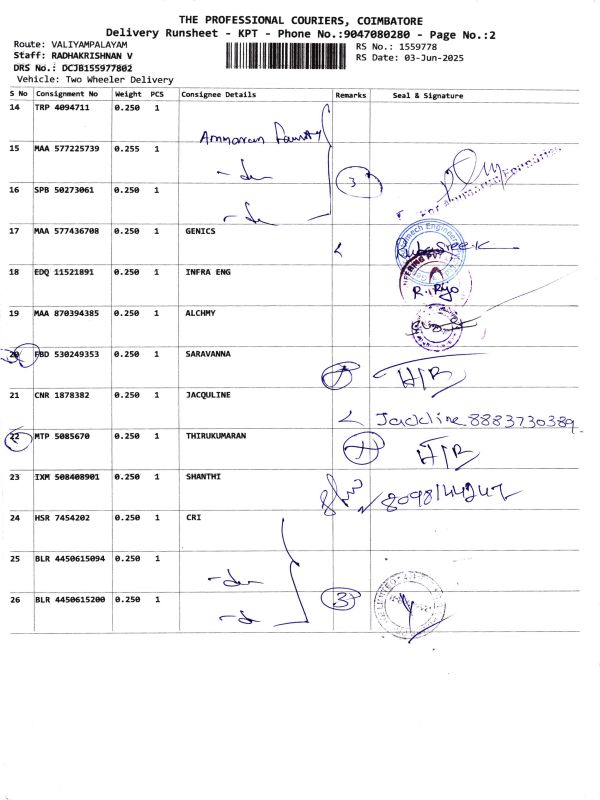 THE PROFESSIONAL COURIERS, COIMBATORE
Delivery Runsheet - KPT - Phone No.:9047080280 - Page No.:2
Route: VALIYAMPALAYAM RS No.: 1559778
Staff: RADHAKRISHNAN V RS Date: 03-Jun-2025
DRS No.: DCJB155977802
Vehicle: Two Wheeler Delivery
S No Consignment No Weight PCS Consignee Details Remarks Seal & Signature
14 TRP 4094711 0.250 1
15 MAA 577225739 0.255 1
3
16 SPB 50273061 0.250 1
17 MAA 577436708 0.250 1 GENICS
18 EDQ 11521891 0.250 1 INFRA ENG
R.Riyo
19 MAA 870394385 0.250 1 ALCHMY
20 FBD 530249353 0.250 1 SARAVANNA H/R
21 CNR 1878382 0.250 1 JACQULINE
Jackline 8883730389
22 MTP 5085670 0.250 1 THIRUKUMARAN H/R
23 IXM 508408901 0.250 1 SHANTHI
24 HSR 7454202 0.250 1 CRI
25 BLR 4450615094 0.250 1
26 BLR 4450615200 0.250 1 3